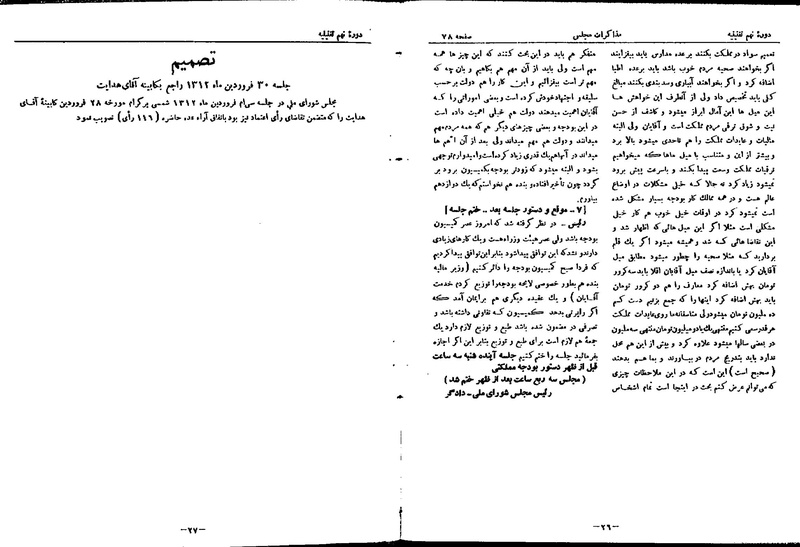 دورهٔ نهم تقنینیه
مذاکرات مجلس
صفحه ۷۸
تعمیم سواد در مملکت بکنند بر عده مدارس باید بیفزایند
اگر بخواهند صحیه مردم خوب باشد باید برعده اطبا
اضافه کرد و اگر بخواهند آبیاری وسدبندی بکنند مبالغ
کلی باید تخصیص داد ولی از آنطرف این خواهش ها
این میل ها این آمال ابراز میشود و کاشف از حسن
نیت و شوق ترقی مردم مملکت است و آقایان ولی البته
مالیات و عایدات مملکت را هم تاحدی میشود بالا برد
وبیشتر از این و متناسب با میل ماها که میخواهیم
ترقیات مملکت وسعت پیدا بکنند و باسرعت پیش برود
نمیشود زیاد کرد نه حالا که خیلی مشکلات در اوضاع
عالم هست و در همه ممالک کار بودجه بسیار مشکل شده
است نمیشود کرد در اوقات خیلی خوب هم کار خیلی
مشکلی است مثلا اگر این میل هائی که اظهار شد و
این تقاضا هائی که شد وهمیشه میشود اگر یک قلم
بردارید که مثلا صحیه را چطور میشود مطابق میل
آقایان کرد یا باندازه نصف میل آقایان اقلا باید سه کرور
تومان بهش اضافه کرد معارف را هم دو کرور تومان
باید بهش اضافه کرد اینها را که جمع بزنیم دست کم
ده ملیون تومان میشود ولی متاسفانه ما روی عایدات مملکت
هرقدر سعی کنیم منتهی یک یادو ملیون تومان منتهی سه ملیون
در بعضی سالها میشود علاوه کرد و بیش از این هم محل
ندارد باید بتدریج مردم در بیاورند و بما هم بدهند
( صحیح است ) این است که در این ملاحظات چیزی
که می توانم عرض کنم بحث در اینجا است تمام اشخاص
متفکر هم باید در این بحث کنند که این چیز ها همه
مهم است ولی باید از آن مهم هم بکاهیم و بان چه که
مهم تر است بیفزائیم و این کار را هم دولت برحسب
سلیقه و اجتهاد خودش کرده است و بعضی اموراتی را که
آقایان اهمیت میدهند دولت هم خیلی اهمیت داده است
در این بودجه و بعضی چیزهای دیگر هم که همه مردم مهم
میدانند و دولت هم مهم میداند ولی بعد از آن اهم ها
میداند در آنها هم یک قدری زیاد کرده است و امیدوارم توجهی
بشود و البته میشود که زودتر بودجه بکمیسیون برود بر
گردد چون تأخیر افتاده و بنده هم نخواستم که یک دوازدهم
بیاورم.
[ ۷ - موقع و دستور جلسه بعد - ختم جلسه ]
رئیس - در نظر گرفته شد که امروز عصر کمیسیون
بودجه باشد ولی عصر هیئت وزراء هست ویک کارهای زیادی
دارند و نشد که این توافق پیدا شود بنابر این توافق پیدا کردیم
که فردا صبح کمیسیون بودجه را دائر کنیم ( وزیر مالیه
بنده هم بطور خصوصی لایحه بودجه را توزیع کردم خدمت
آقایان ) و یک عقیده دیگری هم برایمان آمد که
اگر راپرتی بدهد کمیسیون که تفاوتی داشته باشد و
تصرفی در مضمون شده باشد طبع و توزیع لازم دارد یک
جمعهٔ هم لازم است برای طبع و توزیع بنابر این اگر اجازه
بفرمائید جلسه را ختم کنیم جلسه آینده شنبه سه ساعت
قبل از ظهر دستور بودجه مملکتی
( مجلس سه ربع ساعت بعد از ظهر ختم شد )
رئیس مجلس شورای ملی - دادگر
-۲۶-
دورهٔ نهم تقنینیه
تصمیم
جلسه ۳۰ فروردین ماه ۱۳۱۲ راجع بکابینه آقای هدایت
مجلس شورای ملی در جلسه سی‌ام فروردین ماه ۱۳۱۲ شمسی پرگرام مورخه ۲۸ فروردین کابینهٔ آقای
هدایت را که متضمن تقاضای رأی اعتماد نیز بود باتفاق آراء عده حاضره ( ۱۱۶ رأی ) تصویب نمود
-۲۷-